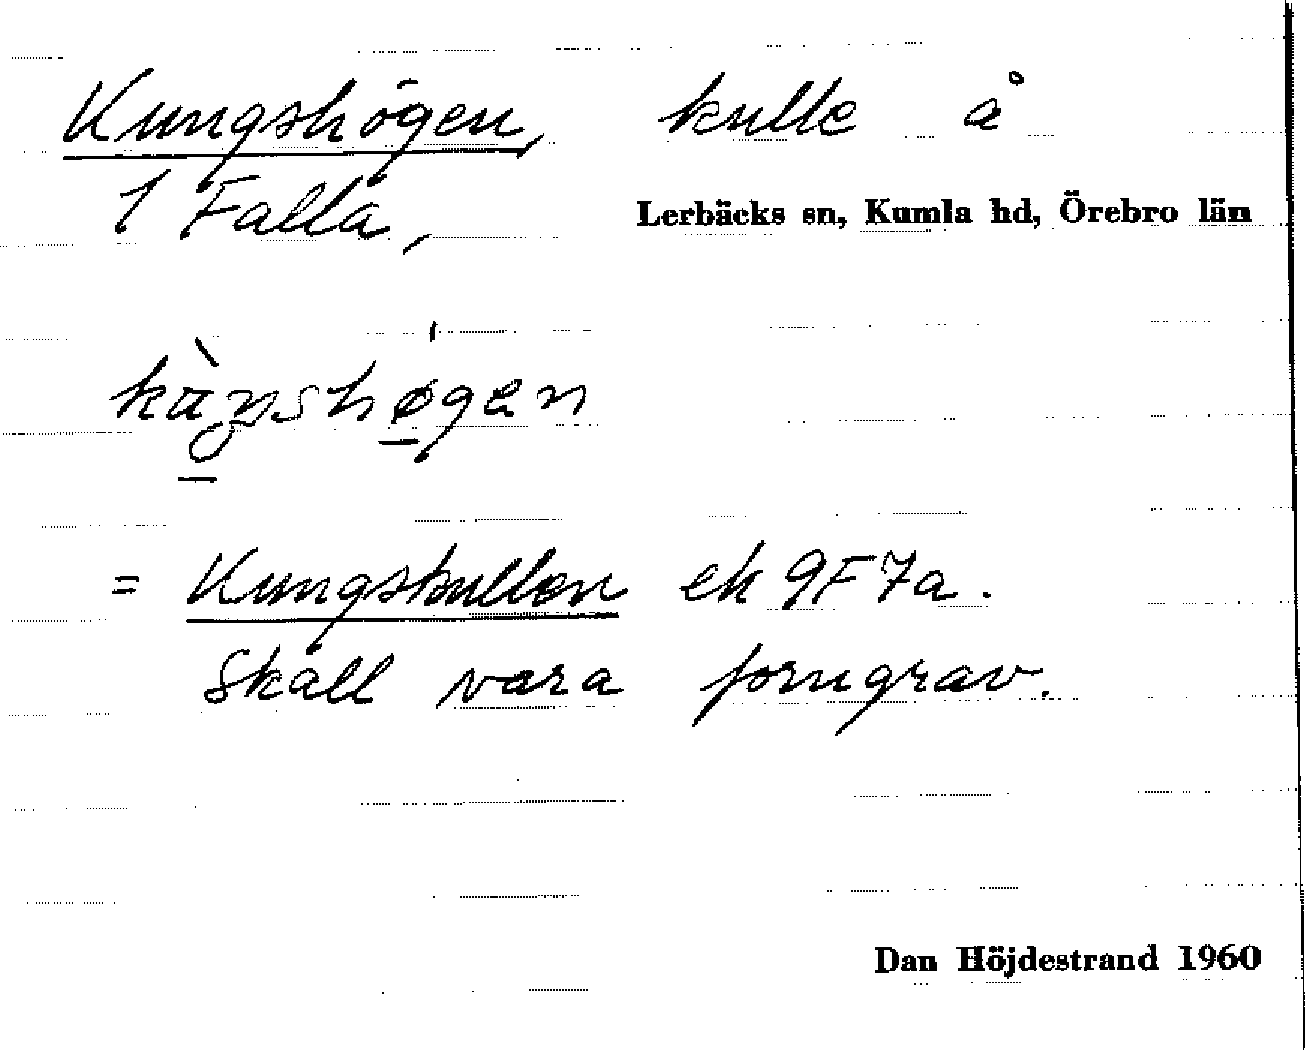 Kungshögen, kulle å
1 Falla, Lerbäcks sn, Kumla hd, Örebro län
= Kungskullen ek 9F7a.
Skall vara forngrav.
Dan Höjdestrand 1960